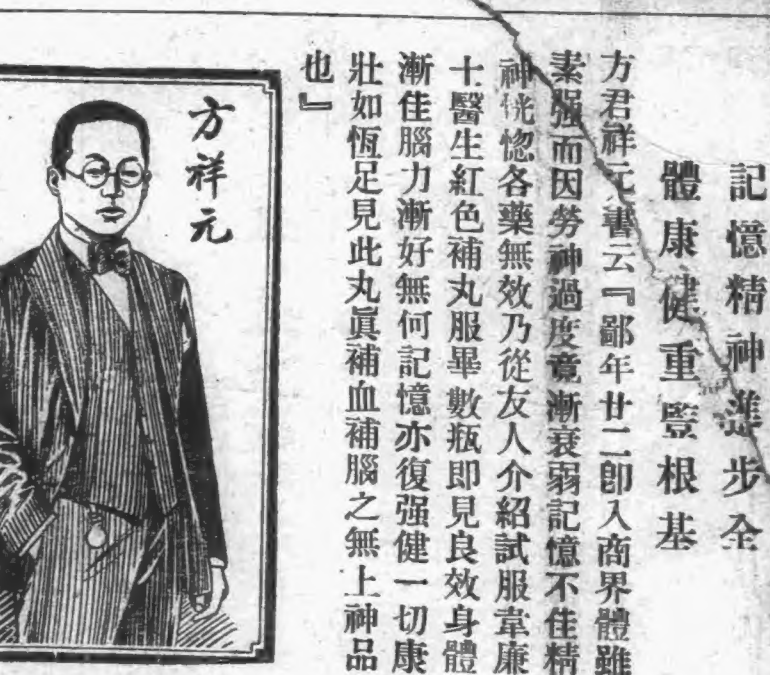 記憶精神進步全
體康健重豎根基
方君祥元書云『鄙年廿二卽入商界體雖
素强而因勞神過度竟漸衰弱記憶不佳精
神恍惚各藥無效乃從友人介紹試服韋廉
士醫生紅色補丸服畢數瓶即見良效身體
漸佳腦力漸好無何記憶亦復强健一切康
壯如恆足見此丸眞補血補腦之無上神品
也』
方祥元